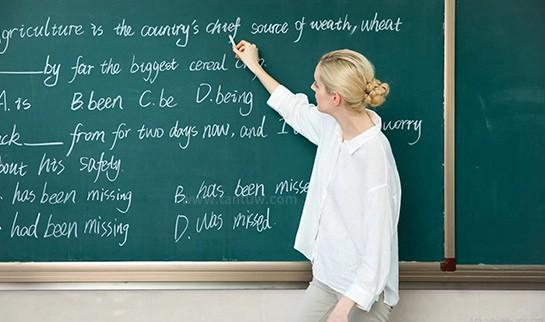 griculture is the country's chief source of weath, wheat
____by far the biggest cereal
A. is B. been C. be D. being
ack____ from for two days now, and I worry
bout his safety.
has been missing B. has been misse
had been missing D. was missed.
www.tantuw.com